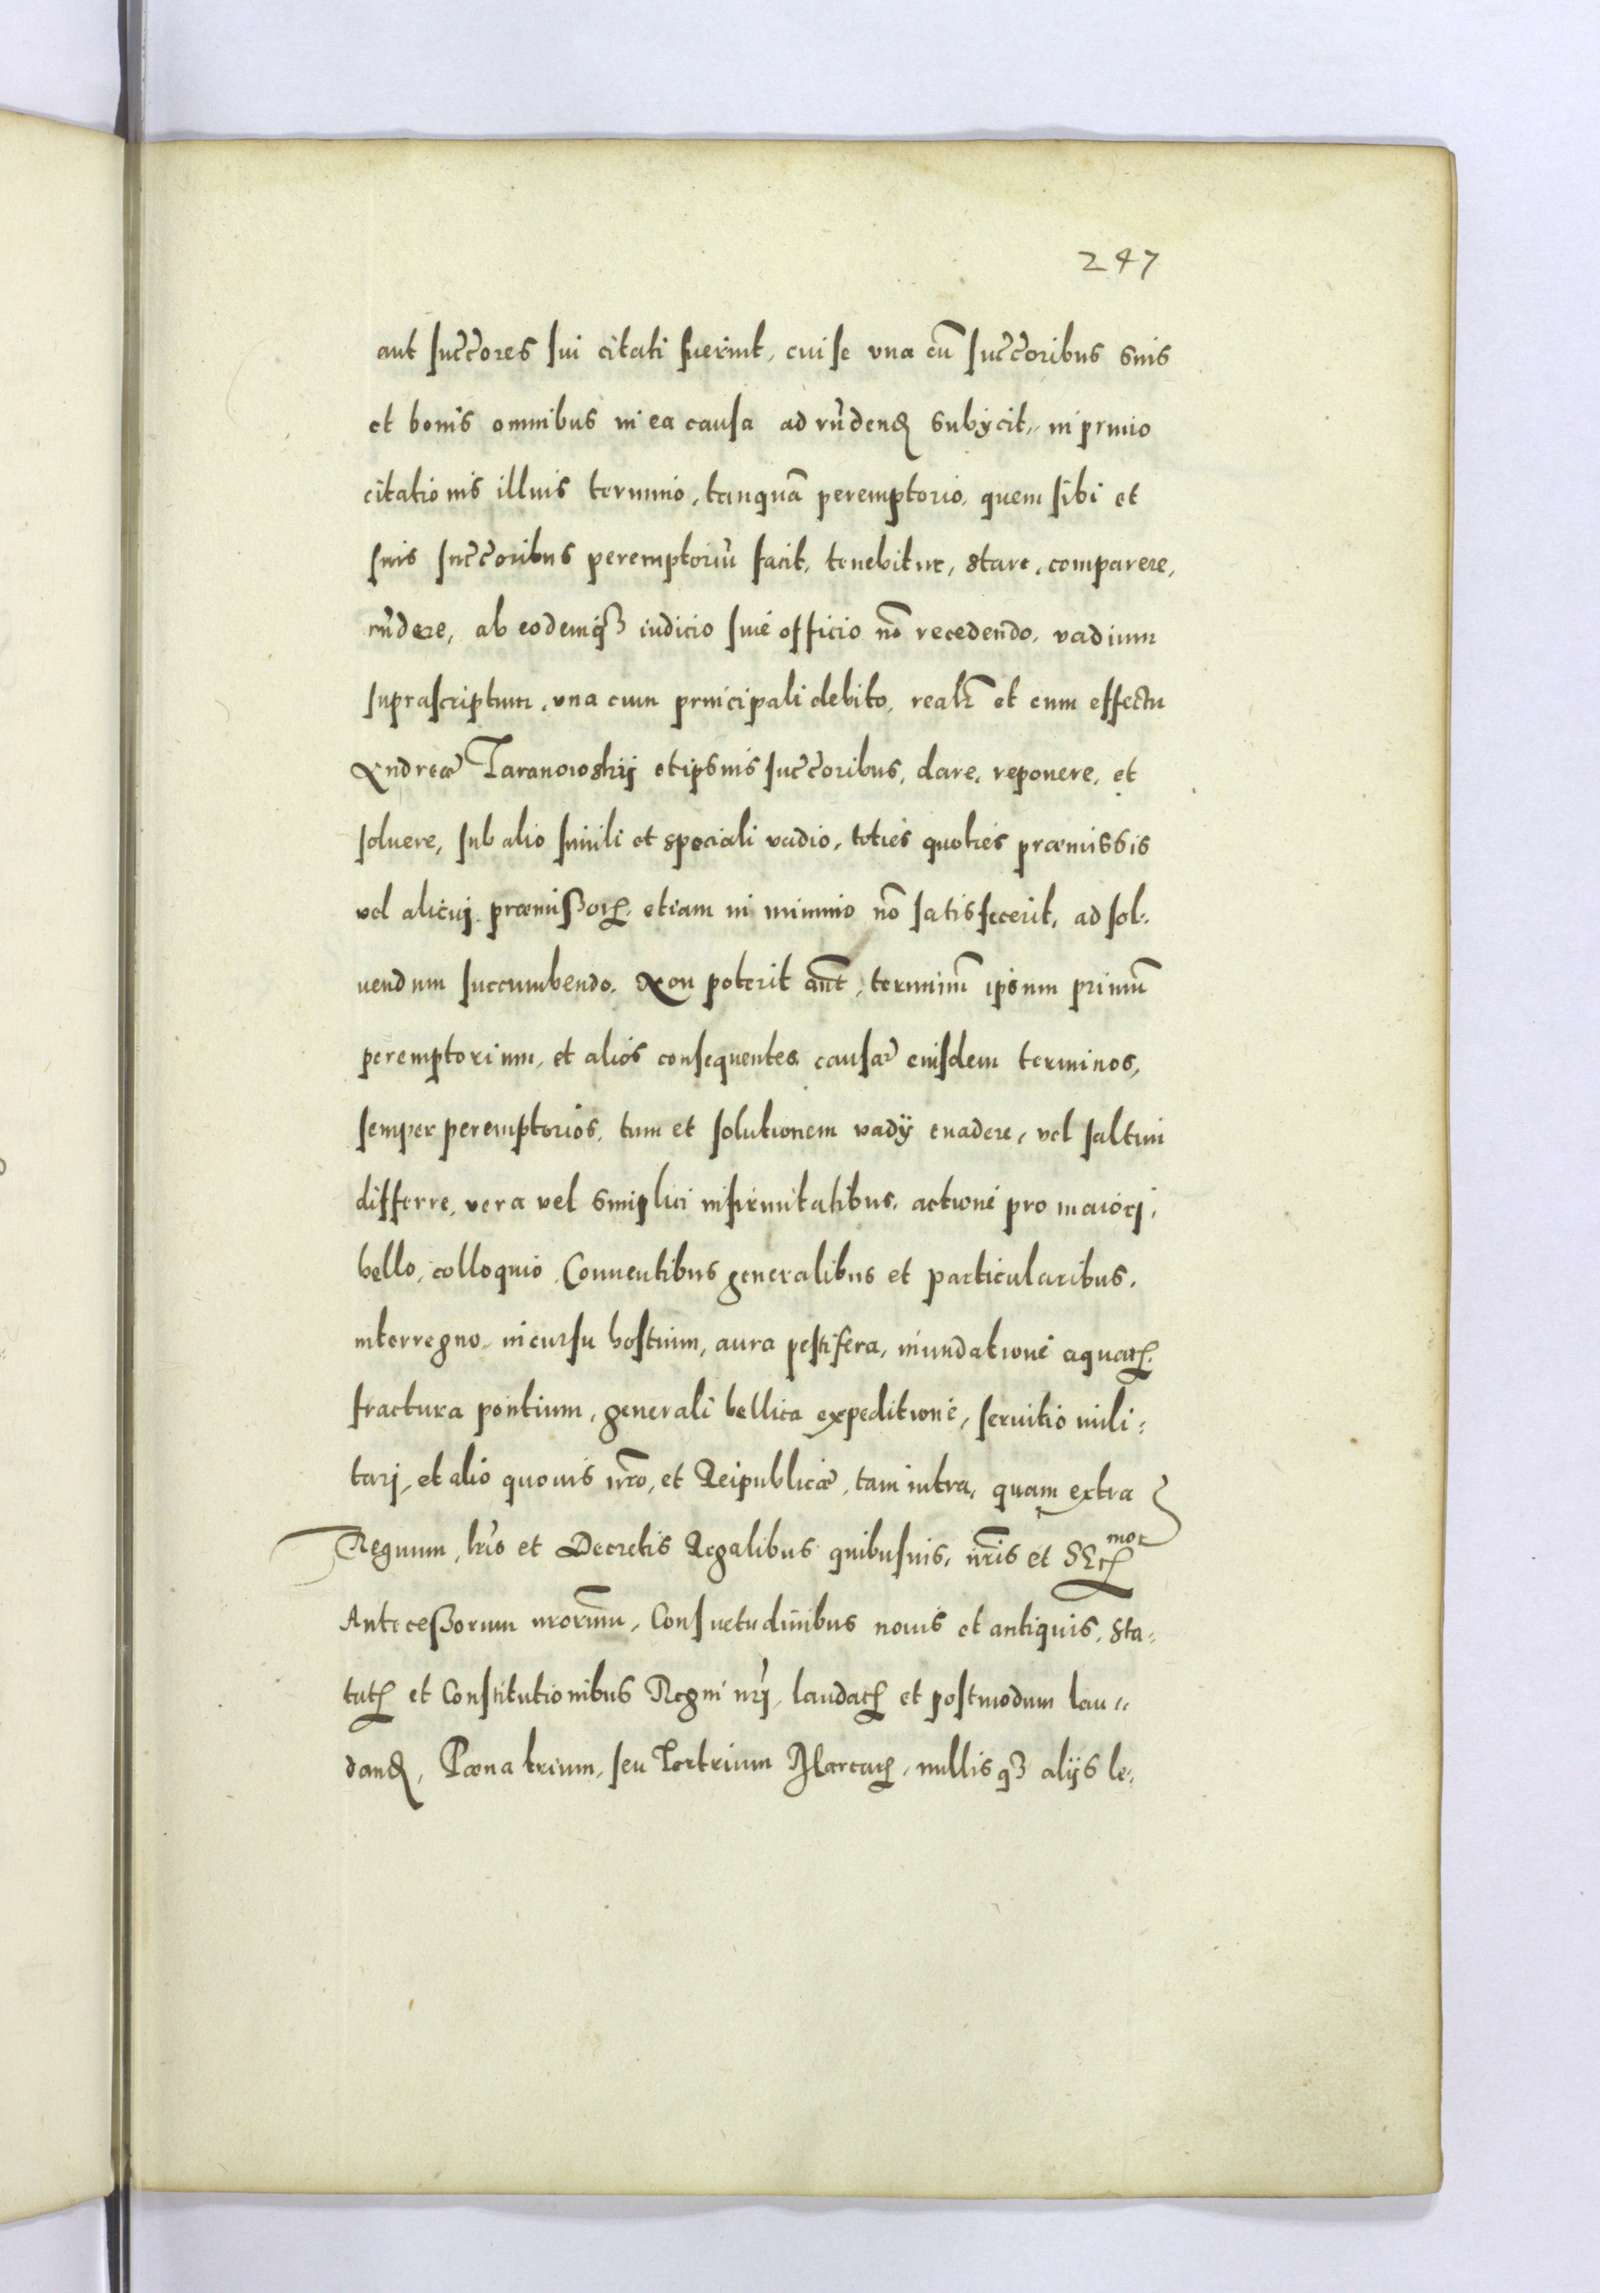 247
aut succ̃ores sui citati fuerint, cui se vna cũ succ̃oribus suis
et bonis omnibus in ea causa ad rñdend subÿcit, in primo
citationis illius termino, tanquã peremptorio, quem sibi et
suis succ̃oribus peremptoriũ facit, tenebitur, stare, comparere,
rñdere, ab eodemqȝ iudicio siue officio nõ recedendo, vadium
suprascriptum, vna cum principali debito, realr̃ et cum effectu
Andreæ Taranowskij et ipsius succ̃oribus, dare, reponere, et
soluere, sub alio simili et speciali vadio, toties quoties præmissis
vel alicuj præmißorꝝ etiam in minimo nõ satisfecerit, ad sol-
uendum succumbendo. Non poterit aũt, terminũ ipsum primũ
peremptorium, et alios consequentes causæ eiusdem terminos,
semper peremptorios, tum et solutionem vadÿ euadere, vel saltim
differre, vera vel simplici infirmitatibus, actione pro maiorj,
bello, colloquio, Conuentibus generalibus et particularibus,
interregno, incursu hostium, aura pestifera, inundatione aquarꝝ
fractura pontium, generali bellica expeditione, seruitio mili:
tarj, et alio quouis nr̃o, et Reipublicæ, tam intra, quam extra
Regnum, lr̃is et Decretis Regalibus quibusuis, nr̃is et SSrꝝ mor
Anteceßorum nr̃orum, Consuetudinibus nouis et antiquis, Sta-
tutꝝ et Constitutionibus Regni nr̃j, laudatꝝ et postmodum lau-
dand, Pœna trium, seu Ter trium Marcarꝝ, nullisqȝ alijs le-